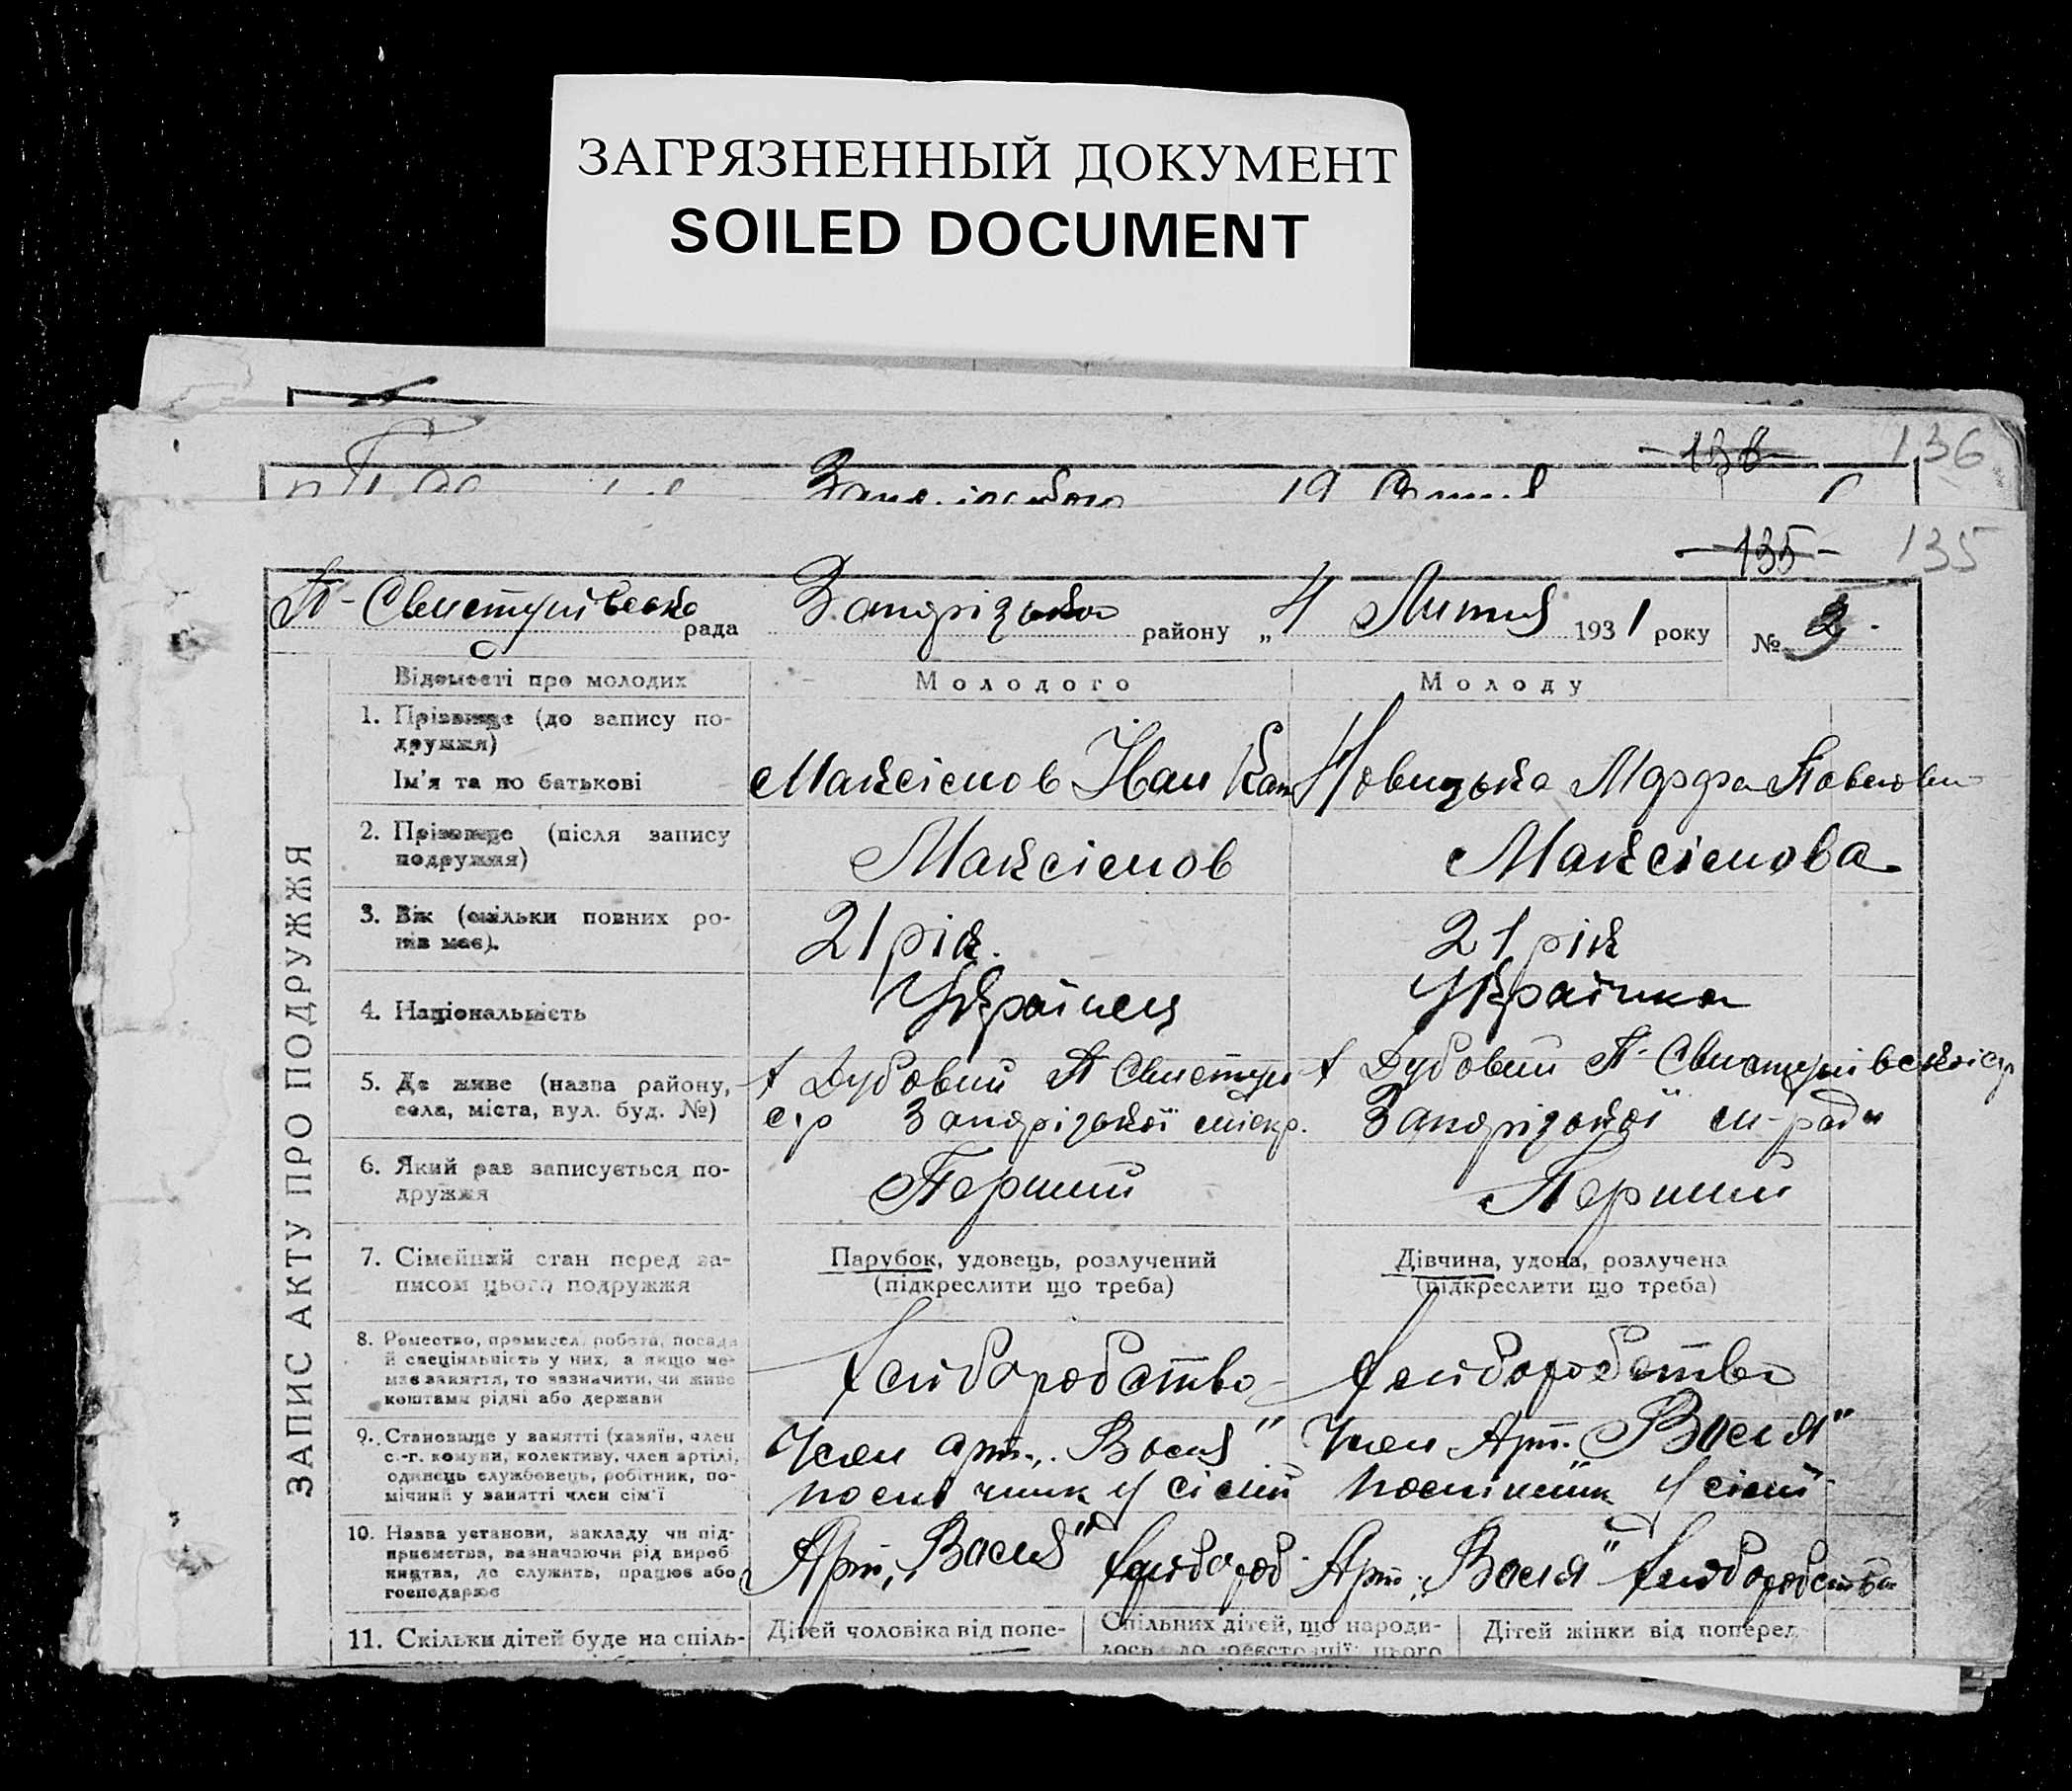 ЗАГРЯЗНЕННЫЙ ДОКУМЕНТ
SOILED DOCUMENT
138 136
135 135
П-Свистунівська рада Запорізької району „4 Лютня 1931 року № 2.
ЗАПИС АКТУ ПРО ПОДРУЖЖЯ
Відомості про молодих Молодого Молоду
1. Прізвище (до запису по-
дружжя)
Ім'я та по батькові Максімов Іван Новицька Марфа Павловн
2. Прізвище (після запису
подружжя) Максімов Максімова
3. Вік (скільки повних ро-
ків має). 21 рік. 21 рік
4. Національність Українець Українка
5. Де живе (назва району, х Дубовий П Свистун х Дубовий П-Свистунівської с/р
села, міста, вул. буд. №) с/р Запорізької міськр. Запорізької м-ради
6. Який раз записується по-
дружжя Перший Перший
7. Сімейний стан перед за- Парубок, удовець, розлучений Дівчина, удова, розлучена
писом цього подружжя (підкреслити що треба) (підкреслити що треба)
8. Ремество, промисел, робота, посада
й спеціяльність у них, а якщо не-
має заняття, то зазначити, чи живе
коштами рідні або держави хліборобство хліборобство
9. Становище у занятті (хазяїн, член Член арт. „Воля" Член Арт. „Воля"
с.-г. комуни, колективу, член артілі,
одинець службовець, робітник, по-
мічний у занятті член сім'ї у сімї у сімї
10. Назва установи, закладу чи під- Арт. „Воля" хлібороб Арт. „Воля" хліборобство
приємства, зазначаючи рід вироб
ництва, де служить, працює або
господарює
11. Скільки дітей буде на спіль- Дітей чоловіка від попе- Спільних дітей, що народи- Дітей жінки від поперед
лось до реєстрації цього